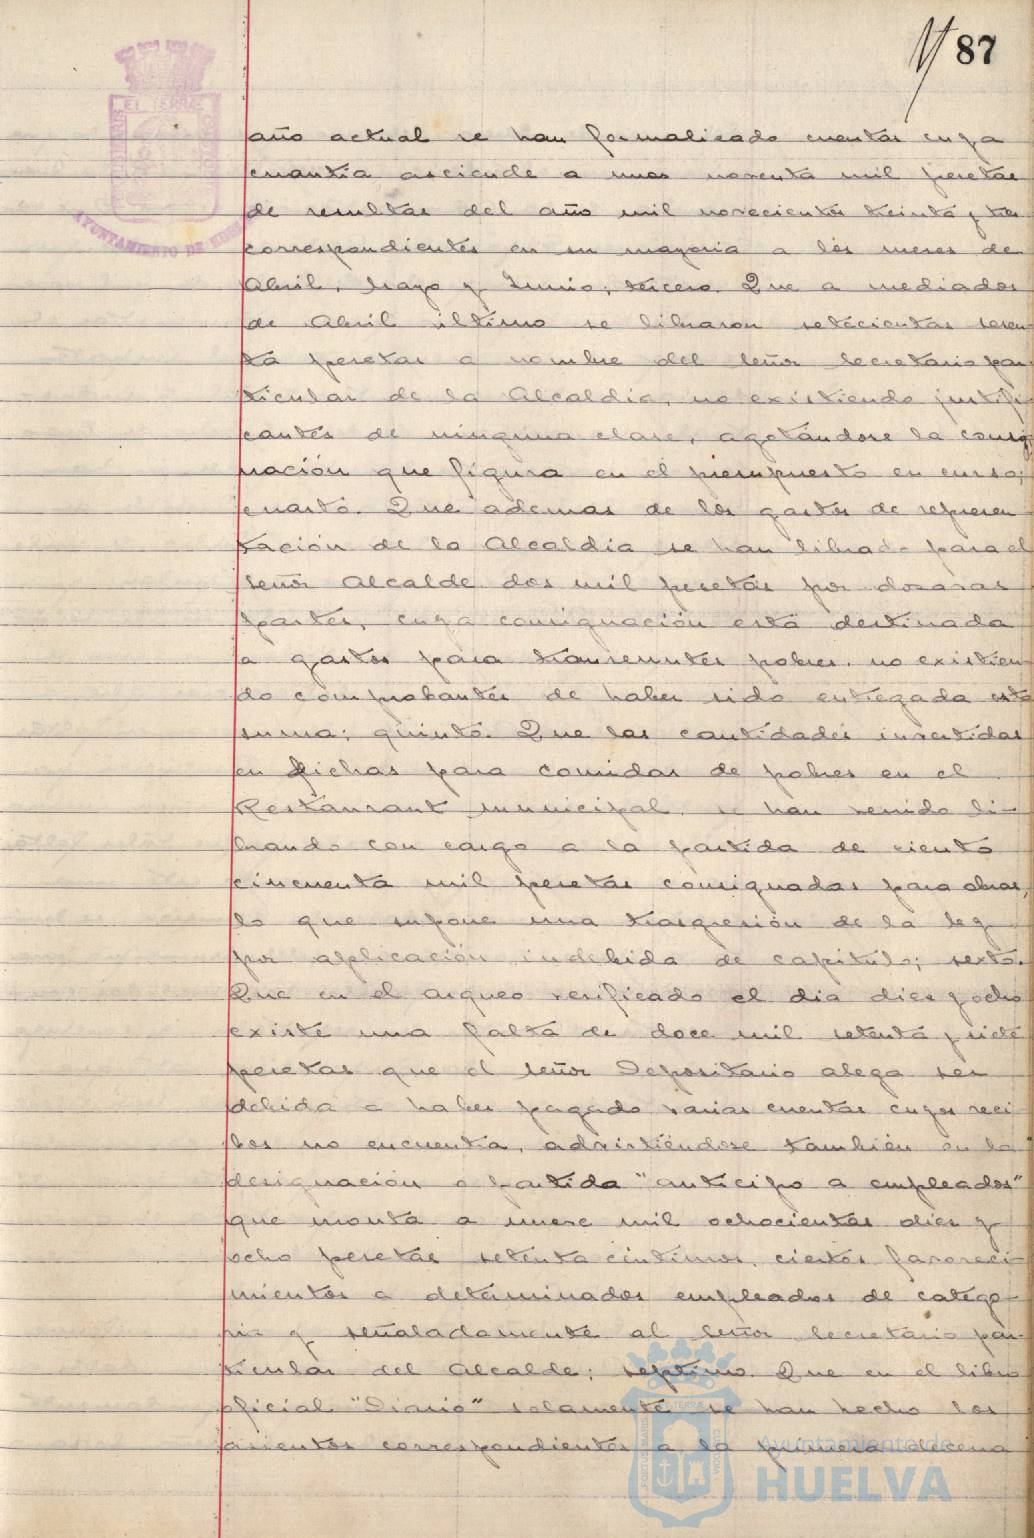 87
año actual se han formalizado cuentas cuya
cuantía asciende a unas noventa mil pesetas
de resultas del año mil novecientos treinta y tres
correspondientes en su mayoria a los meses de
Abril, Mayo y Junio; tercero. Que a mediados
de Abril último se libraron setecientas sesen-
ta pesetas a nombre del Señor Secretario par
ticular de la Alcaldia, no existiendo justifi
cantes de ninguna clase, agotándose la consig
nación que figura en el presupuesto en curso;
cuarto. Que ademas de los gastos de represen
tación de la Alcaldía se han librado para el
Señor Alcalde dos mil pesetas por dozavas
partes, cuya consignación está destinada
a gastos para transeuntes pobres, no existien
do comprobantes de haber sido entregada esta
suma; quinto. Que las cantidades invertidas
en fichas para comidas de pobres en el
Restaurant municipal, se han venido li-
brando con cargo a la partida de ciento
cincuenta mil pesetas consignadas para obras,
lo que supone una trasgresión de la ley
por aplicación indebida de capítulo; sexto.
Que en el arqueo verificado el dia diez y ocho
existe una falta de doce mil setenta y siete
pesetas que el señor Depositario alega ser
debida a haber pagado varias cuentas cuyos reci
bos no encuentra, advirtiéndose también en la
designación o partida "anticipo a empleados"
que monta a nueve mil ochocientas diez y
ocho pesetas setenta céntimos, ciertos favoreci
mientos a determinados empleados de catego-
ria y señaladamente al Señor Secretario par-
ticular del Alcalde; septimo. Que en el libro
oficial "Diario" solamente se han hecho los
asientos correspondientes a la primera decena
EL TERRAE
AYUNTAMIENTO DE
Ayuntamiento de
HUELVA